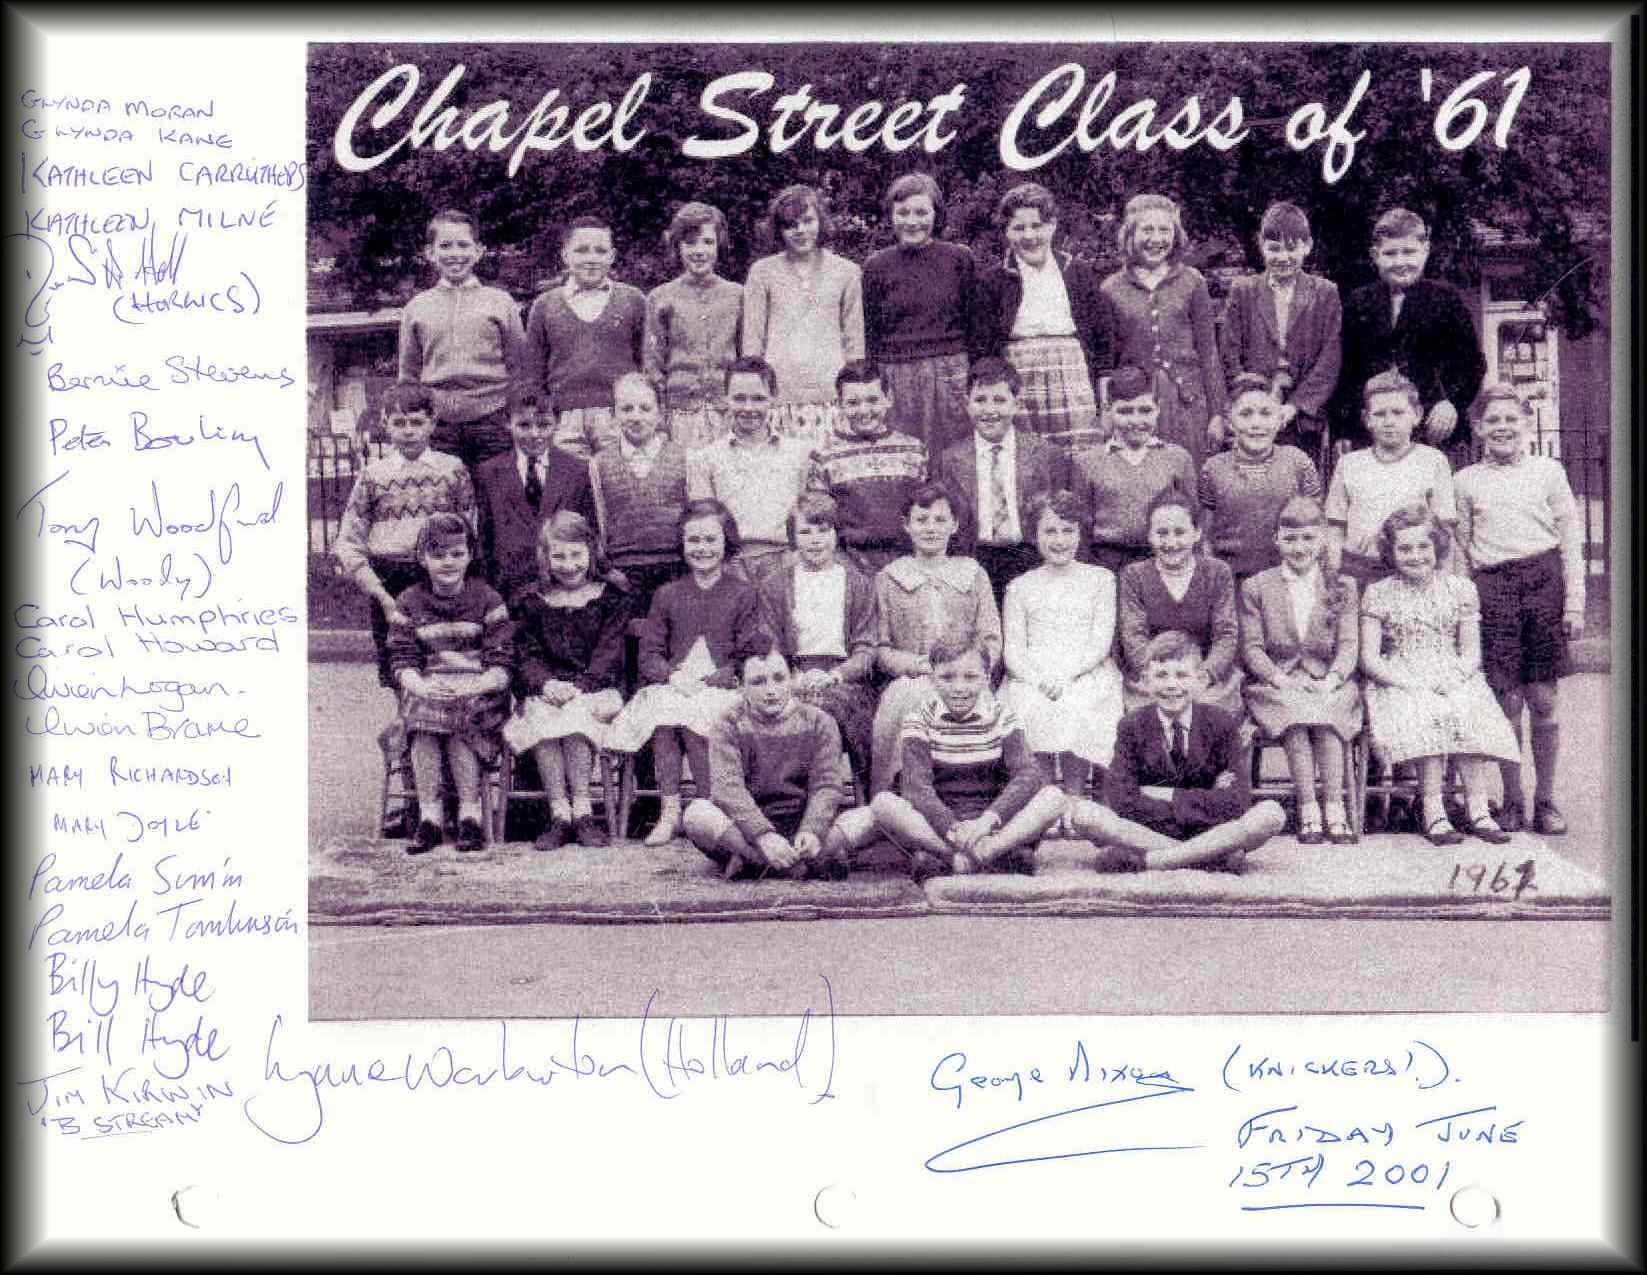 Chapel Street Class of '61
GWYNDA MORAN
GWYNDA KANE
KATHLEEN CARRUTHERS
KATHLEEN MILNE
S A Hall
Bernice Stevens
Peter Bowling
Tony Woodford
(Woody)
Carol Humphries
Carol Howard
Vivien Logan.
Vivien Brame
MARY RICHARDSON
MARY DOYLE
Pamela Simm
Pamela Tomlinson
Billy Hyde
Bill Hyde
JIM KIRWIN
"B STREAM"
Lynne Warburton (Holland)
1961
George Nixon (KNICKERS!).
FRIDAY JUNE
15TH 2001